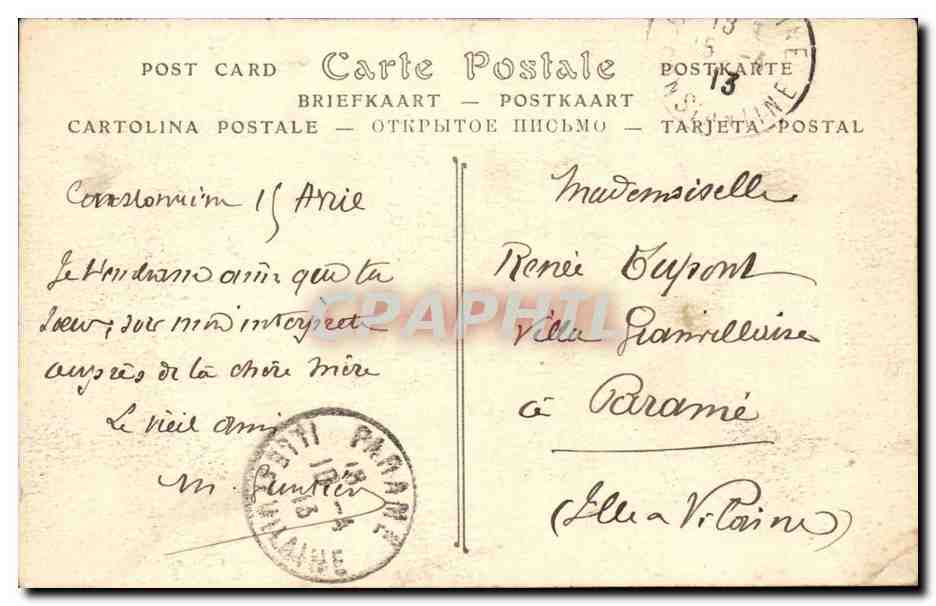 POST CARD Carte Postale POSTKARTE
BRIEFKAART — POSTKAART
CARTOLINA POSTALE — ОТКРЫТОЕ ПИСЬМО — TARJETA POSTAL
15 Avril
Je t'embrasse ainsi que ta
sœur, sois mon interprète
auprès de ta chère mère
Le vieil ami
M.
Mademoiselle
Renée Dupont
Villa Granvillaise
à Paramé
(Ille & Vilaine)
PARAMÉ
18
15-4
13
ILLE-ET-VILAINE
13
15-4
13
CPAPHIL